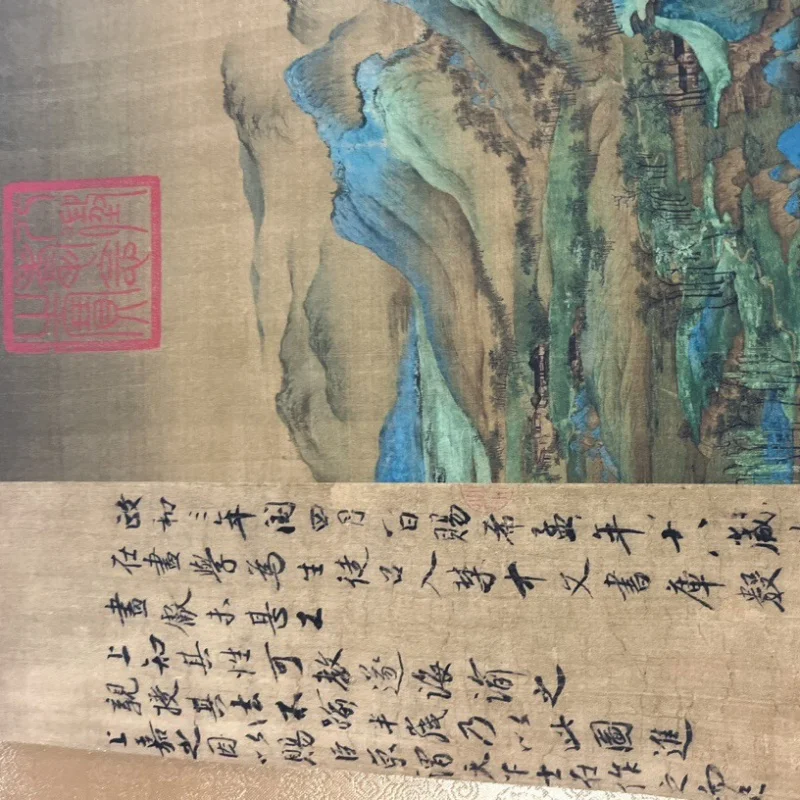 政和三年閏四月八日賜希孟年十八歲
在畫學為生徒召入禁中文書庫數
畫獻未甚工
上知其性可教遂誨諭之
親授其法不踰半歲乃以此圖進
上嘉之因以賜臣京謂天下士在作之而已